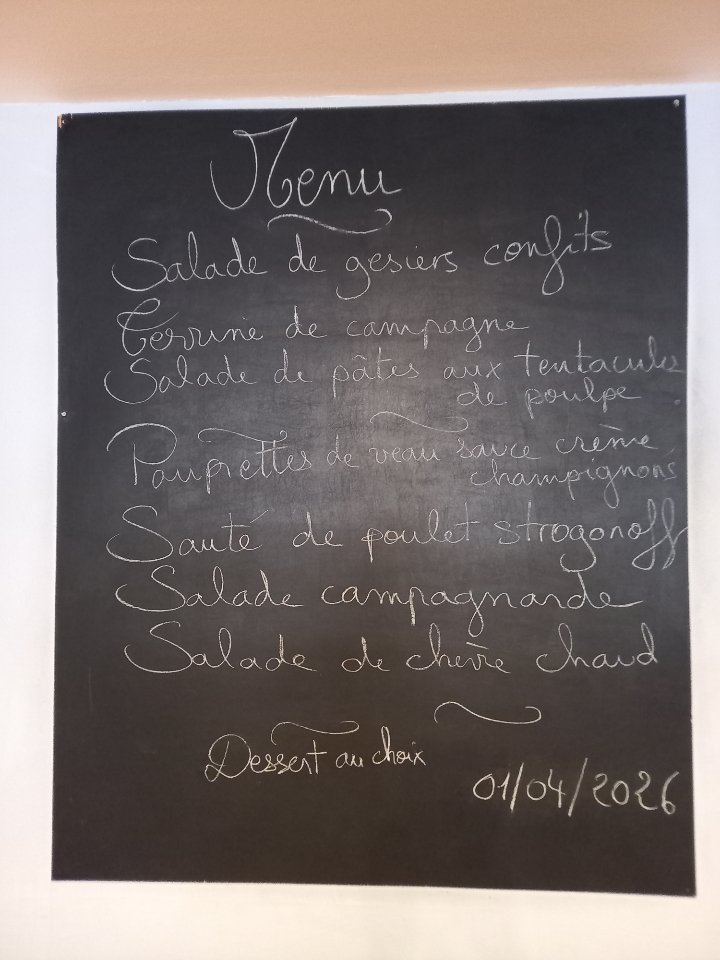 Menu
Salade de gesiers confits
Terrine de campagne
Salade de pâtes aux tentacules
de poulpe
Paupiettes de veau sauce crème
champignons
Sauté de poulet strogonoff
Salade campagnarde
Salade de chèvre chaud
Dessert au choix
01/04/2026